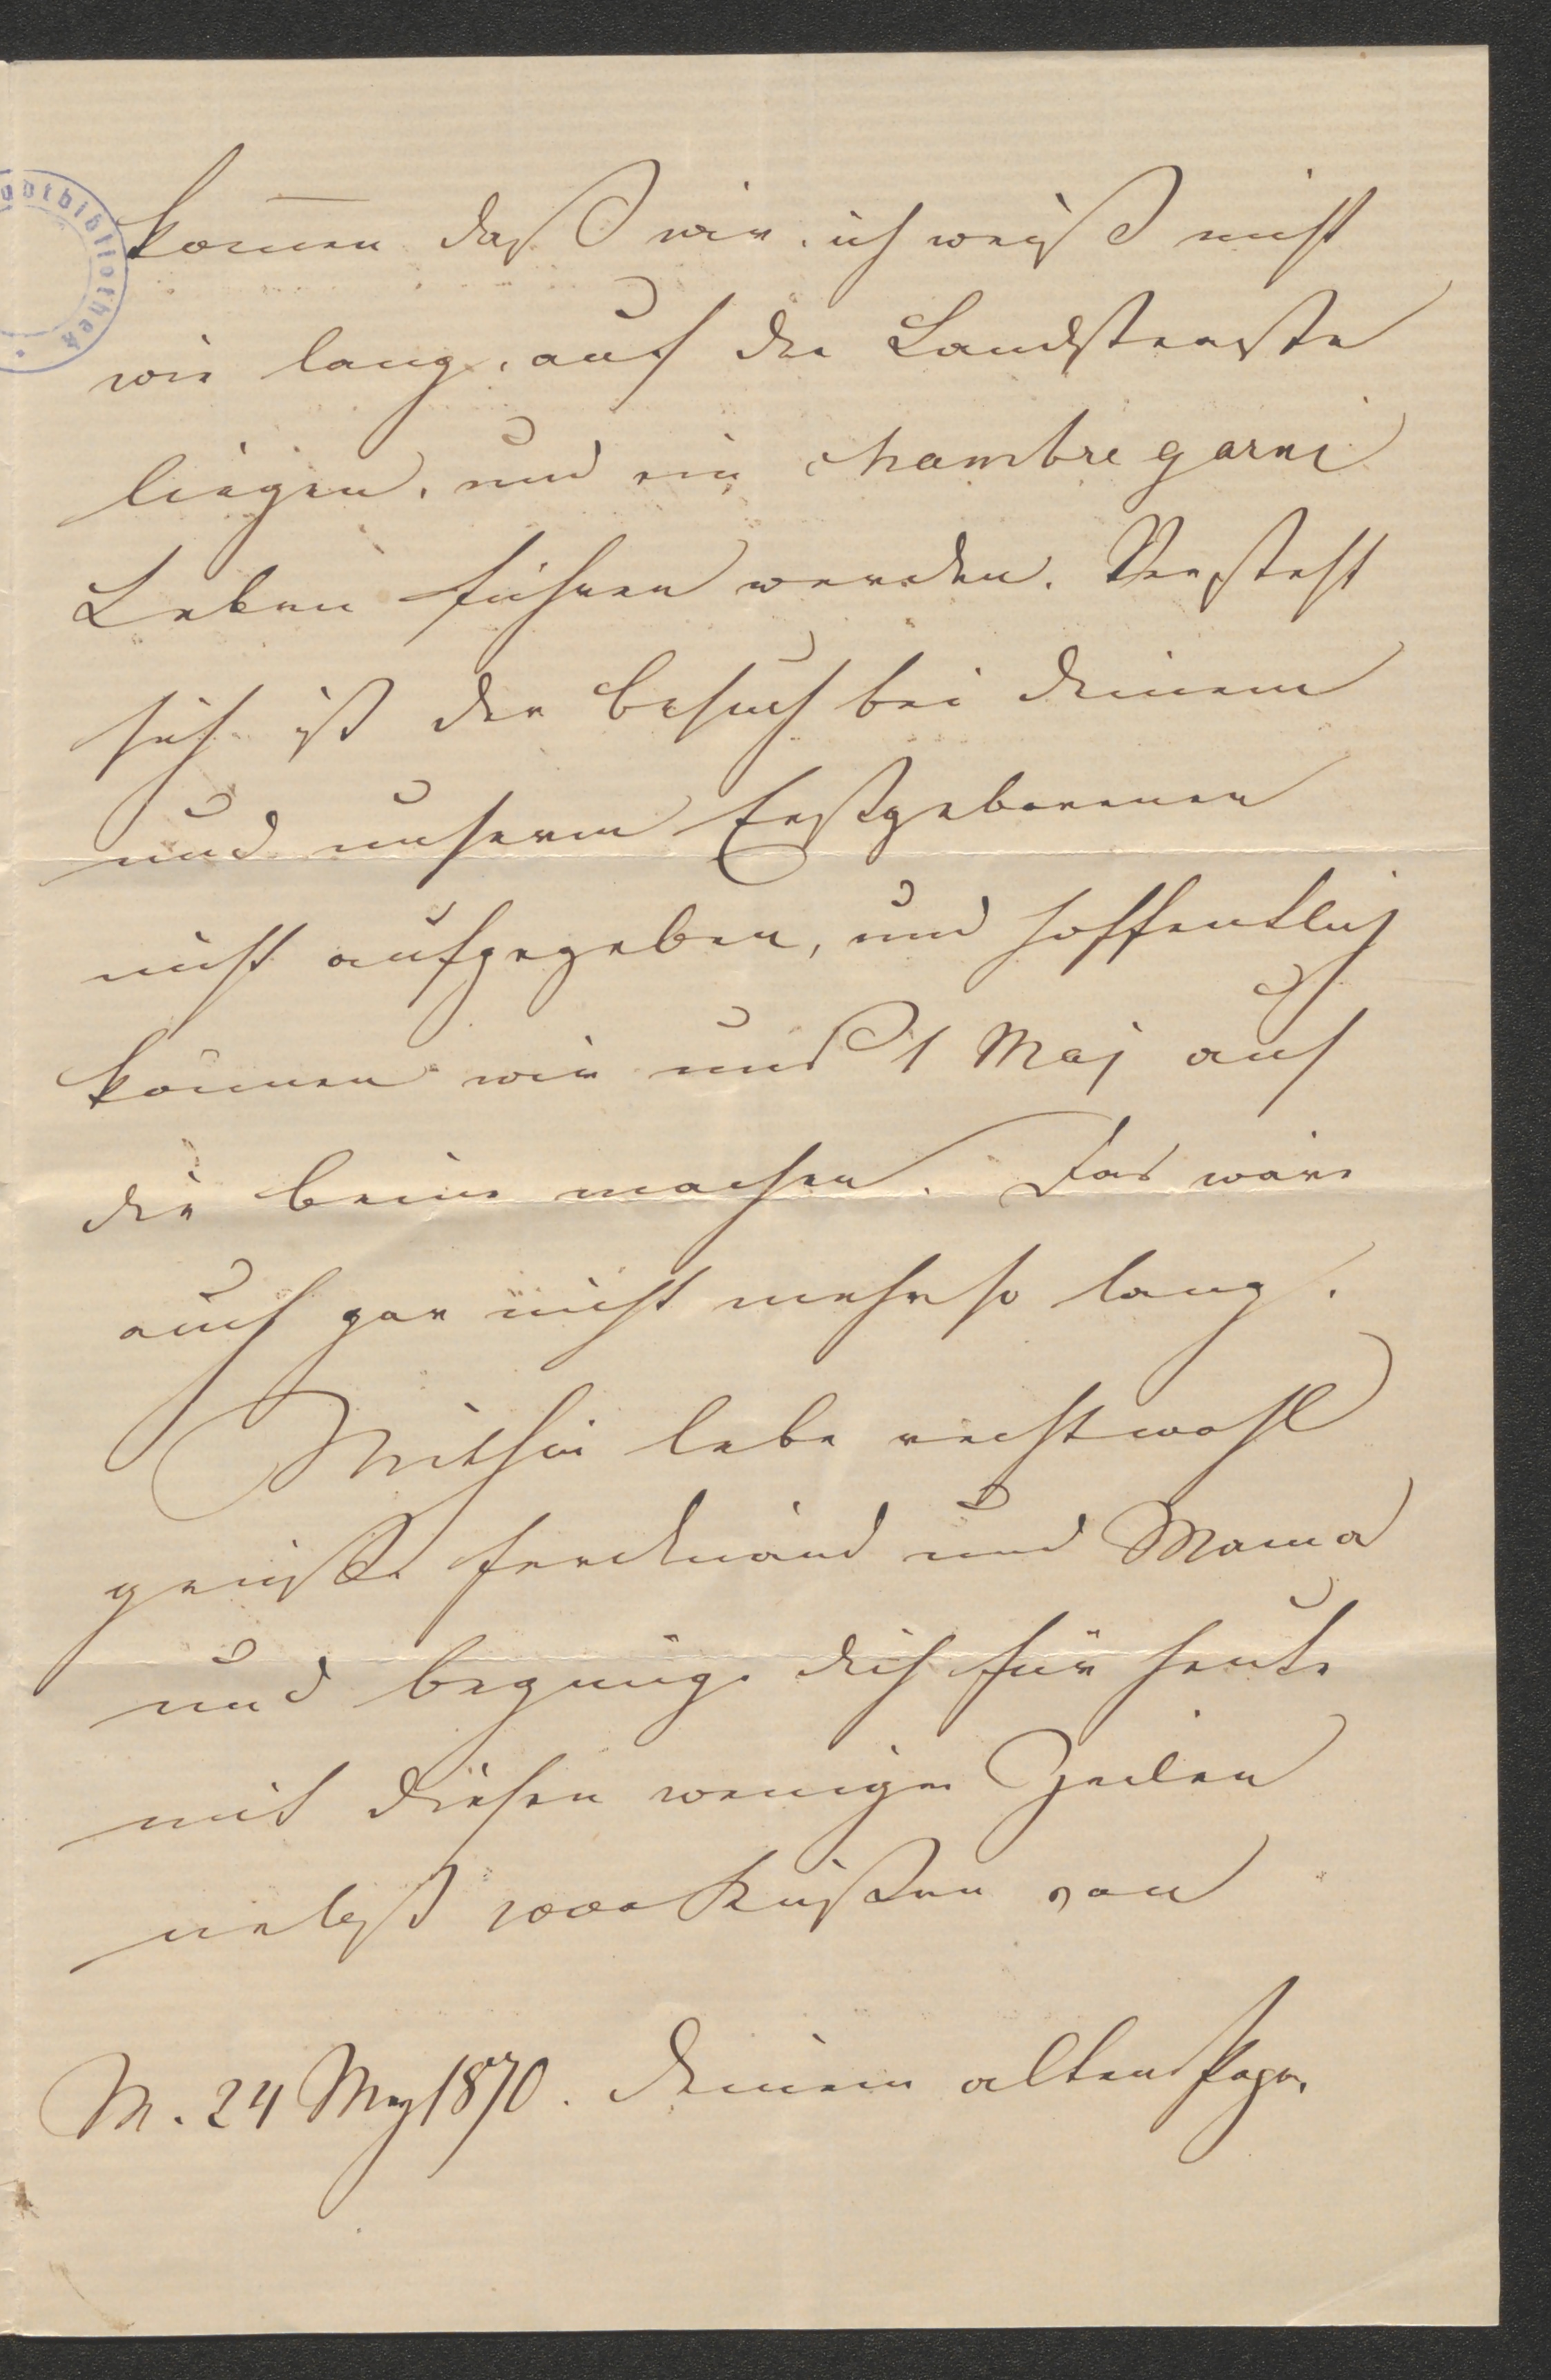 kom̄en daß wir, ich weiß nicht
wie lang, auf der Landstraße
liegen, und ein chambre garni
Leben führen werden. Versteht
sich ist der Besuch bei Deinem
und unserm Erstgeborenen
nicht aufgegeben, und hoffentlich
können wir uns 1 Maj auf
die Beine machen. Das wäre
auch gar nicht mehr so lang.
Mithin lebe recht wohl
grüße Ferdinand und Mama
und begnüge dich für heute
mit diesen wenigen Zeilen
nebst 1000 Küßen von
M. 24 1870. Deinem alten Papa.